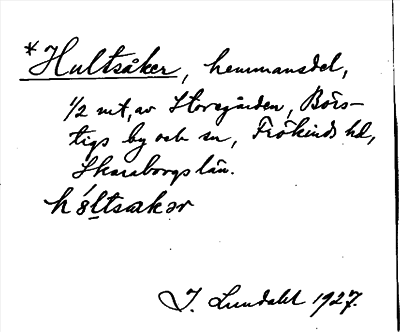 *Hultsåker, hemmansdel,
1/2 mt, av Storegården, Börs-
tigs by och sn, Frökinds hd,
Skaraborgs län.
J. Lundahl 1927.